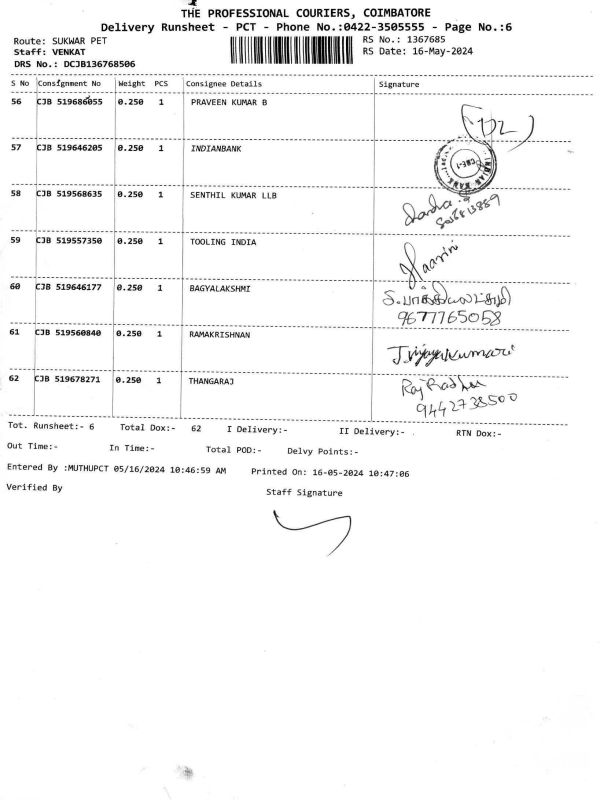 THE PROFESSIONAL COURIERS, COIMBATORE
Delivery Runsheet - PCT - Phone No.:0422-3505555 - Page No.:6
Route: SUKWAR PET
RS No.: 1367685
Staff: VENKAT
RS Date: 16-May-2024
DRS No.: DCJB136768506
S No Consignment No Weight PCS Consignee Details Signature
56 CJB 519686055 0.250 1 PRAVEEN KUMAR B
57 CJB 519646205 0.250 1 INDIANBANK
INDIAN BANK CBE-1
58 CJB 519568635 0.250 1 SENTHIL KUMAR LLB
59 CJB 519557350 0.250 1 TOOLING INDIA
60 CJB 519646177 0.250 1 BAGYALAKSHMI
9677765058
61 CJB 519560840 0.250 1 RAMAKRISHNAN
J. Vijayakumari
62 CJB 519678271 0.250 1 THANGARAJ
9442738500
Tot. Runsheet:- 6 Total Dox:- 62 I Delivery:- II Delivery:- . RTN Dox:-
Out Time:- In Time:- Total POD:- Delvy Points:-
Entered By :MUTHUPCT 05/16/2024 10:46:59 AM Printed On: 16-05-2024 10:47:06
Verified By Staff Signature